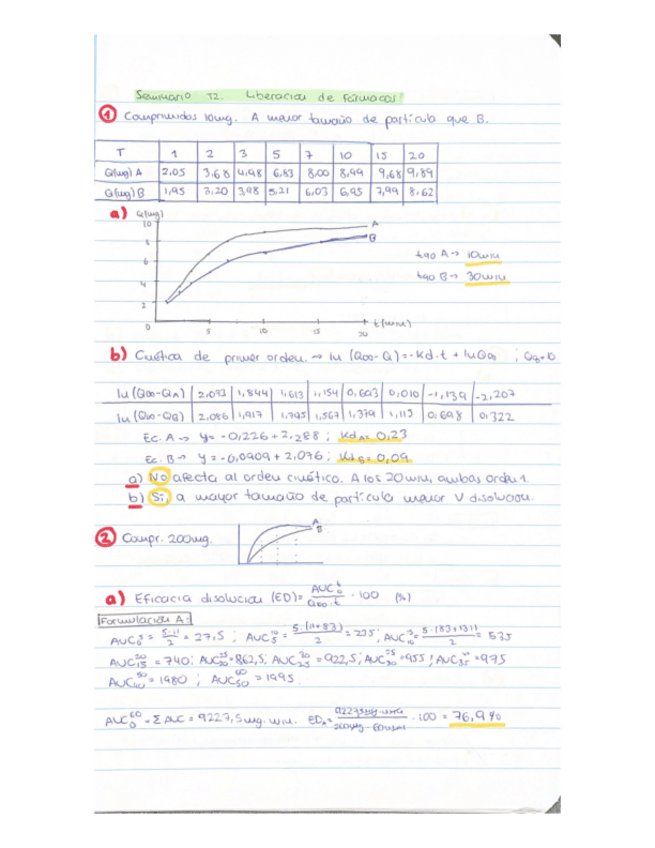 Seminario T2. Liberación de Fármacos
1 Comprimidos 10mg. A menor tamaño de partícula que B.
T 1 2 3 5 7 10 15 20
Q(mg) A 2,05 3,68 4,98 6,83 8,00 8,99 9,68 9,89
Q(mg) B 1,95 3,20 3,98 5,21 6,03 6,95 7,99 8,62
a) Q(mg)
10
8
6
4
2
0 5 10 15 20 t (min)
A
B
t90 A → 10min
t90 B → 30min
b) Cinética de primer orden. → ln (Q∞-Qt) = -Kd·t + lnQ∞ ; Q∞=10
ln (Q∞-QA) 2,073 1,844 1,613 1,154 0,693 0,010 -1,139 -2,207
ln (Q∞-QB) 2,086 1,917 1,795 1,567 1,379 1,115 0,698 0,322
Ec. A → y = -0,226+2,288 ; KdA = 0,23
Ec. B → y = -0,0909+2,076 ; KdB = 0,09
a) No afecta al orden cinético. A los 20min, ambas orden 1.
b) Sí, a mayor tamaño de partícula menor V disolución.
2 Compr. 200mg.
A
B
a) Eficacia disolución (ED) = AUC0t / Q∞·t · 100 (%)
Formulación A:
AUC05 = 5·11/2 = 27,5 ; AUC510 = 5·(11+83)/2 = 235 ; AUC1015 = 5·(83+131)/2 = 535
AUC1520 = 740 ; AUC2025 = 862,5 ; AUC2530 = 922,5 ; AUC3035 = 955 ; AUC3540 = 975
AUC4050 = 1980 ; AUC5060 = 1995.
AUC060 = Σ AUC = 9227,5 mg.min. EDA = 9227,5mg·min / 200mg·60min · 100 = 76,9%